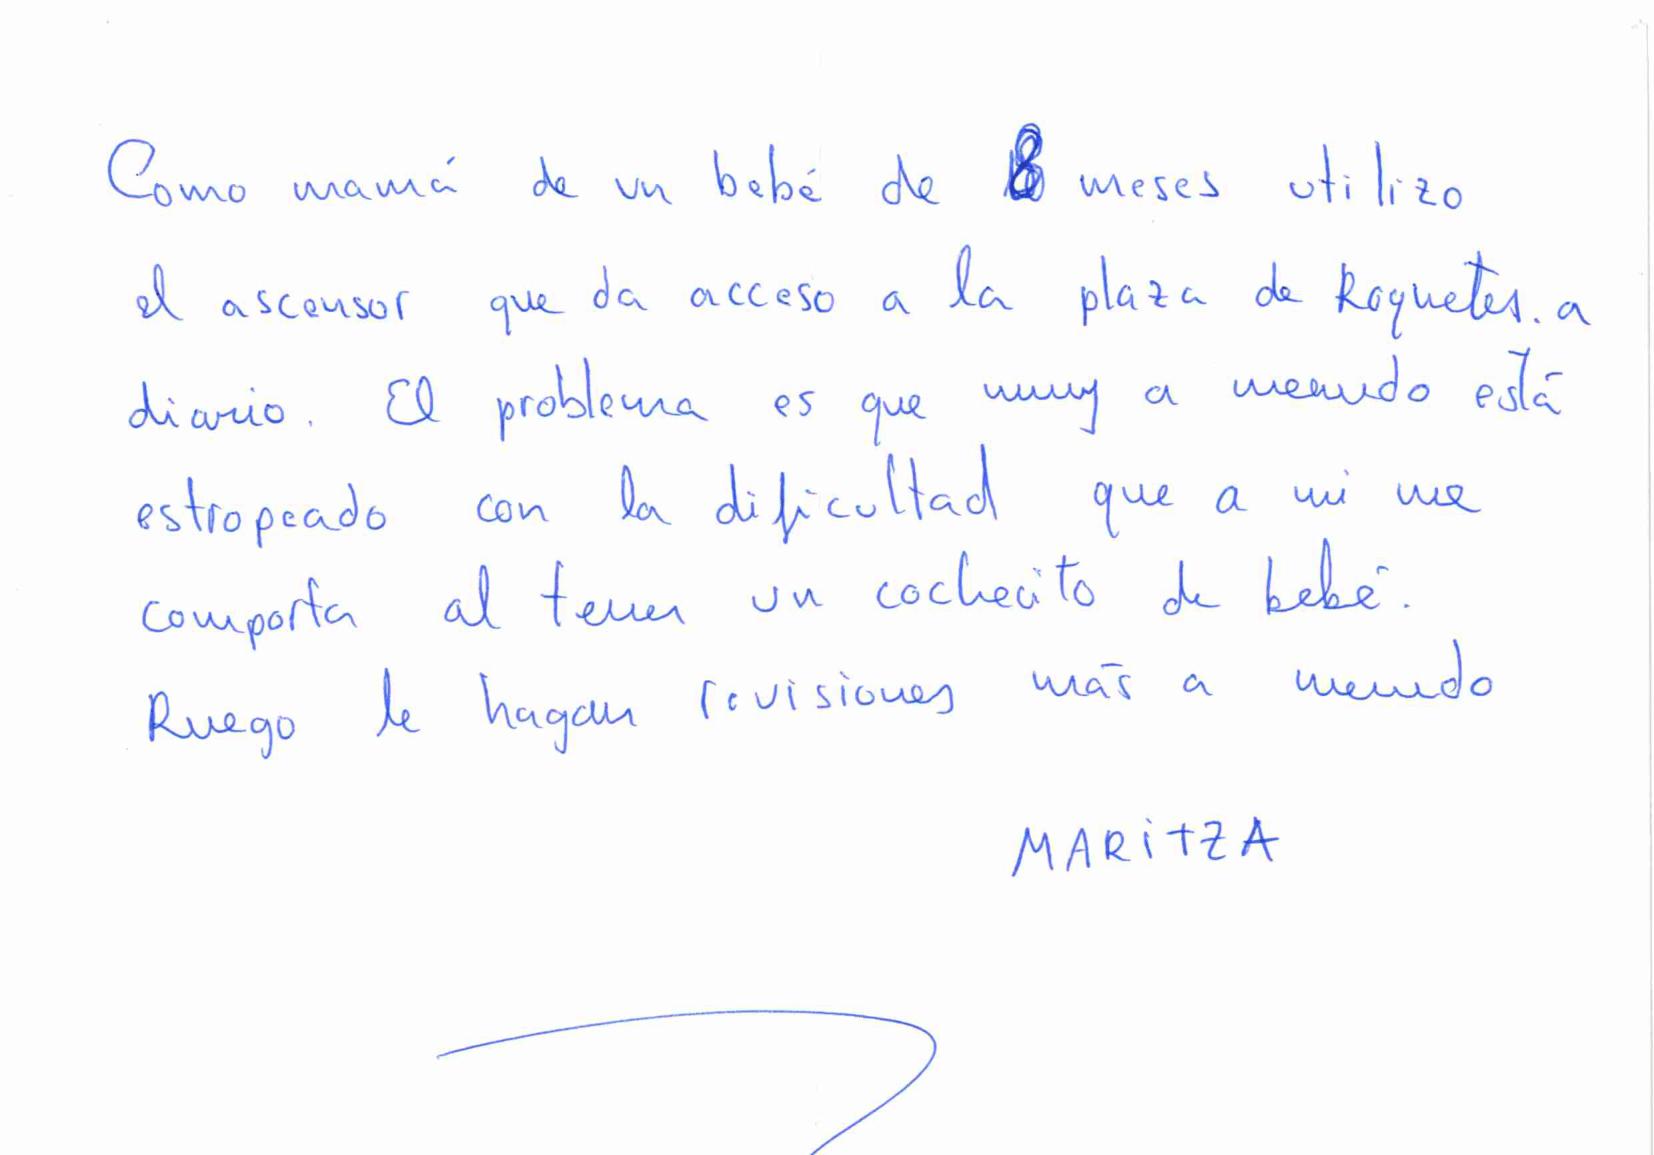 Como mamá de un bebé de 8 meses utilizo
el ascensor que da acceso a la plaza de Roquetes. a
diario. El problema es que muy a menudo está
estropeado con la dificultad que a mi me
comporta al tener un cochecito de bebé.
Ruego le hagan revisiones más a menudo
MARiTZA